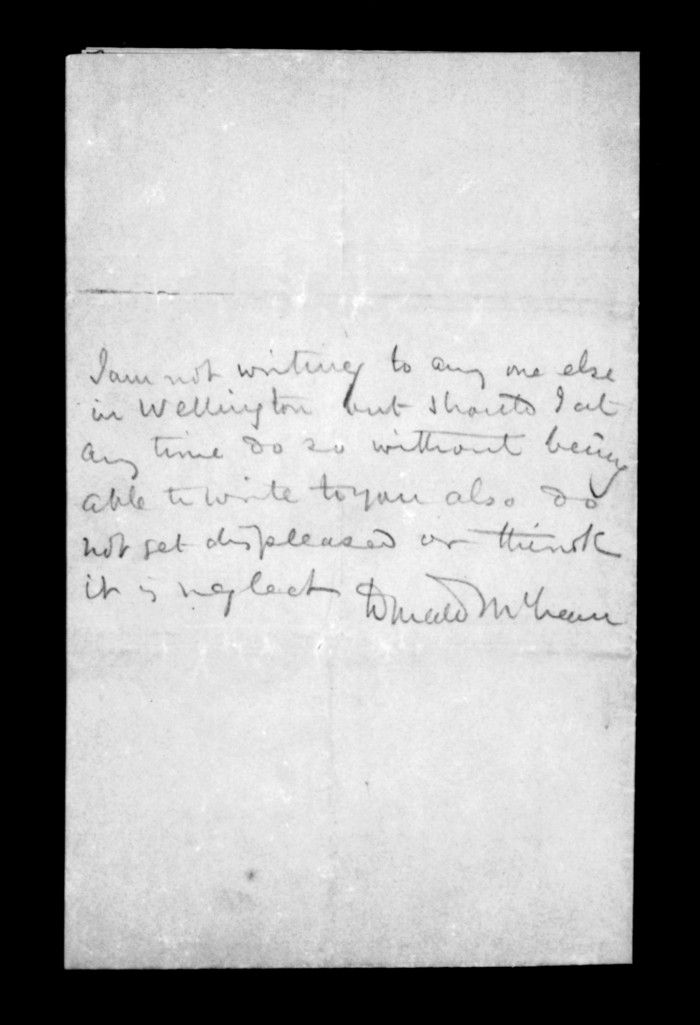 I am not writing to any one else
in Wellington but should I at
any time do so without being
able to write to you also do
not get displeased or think
it is neglect Donald McLean